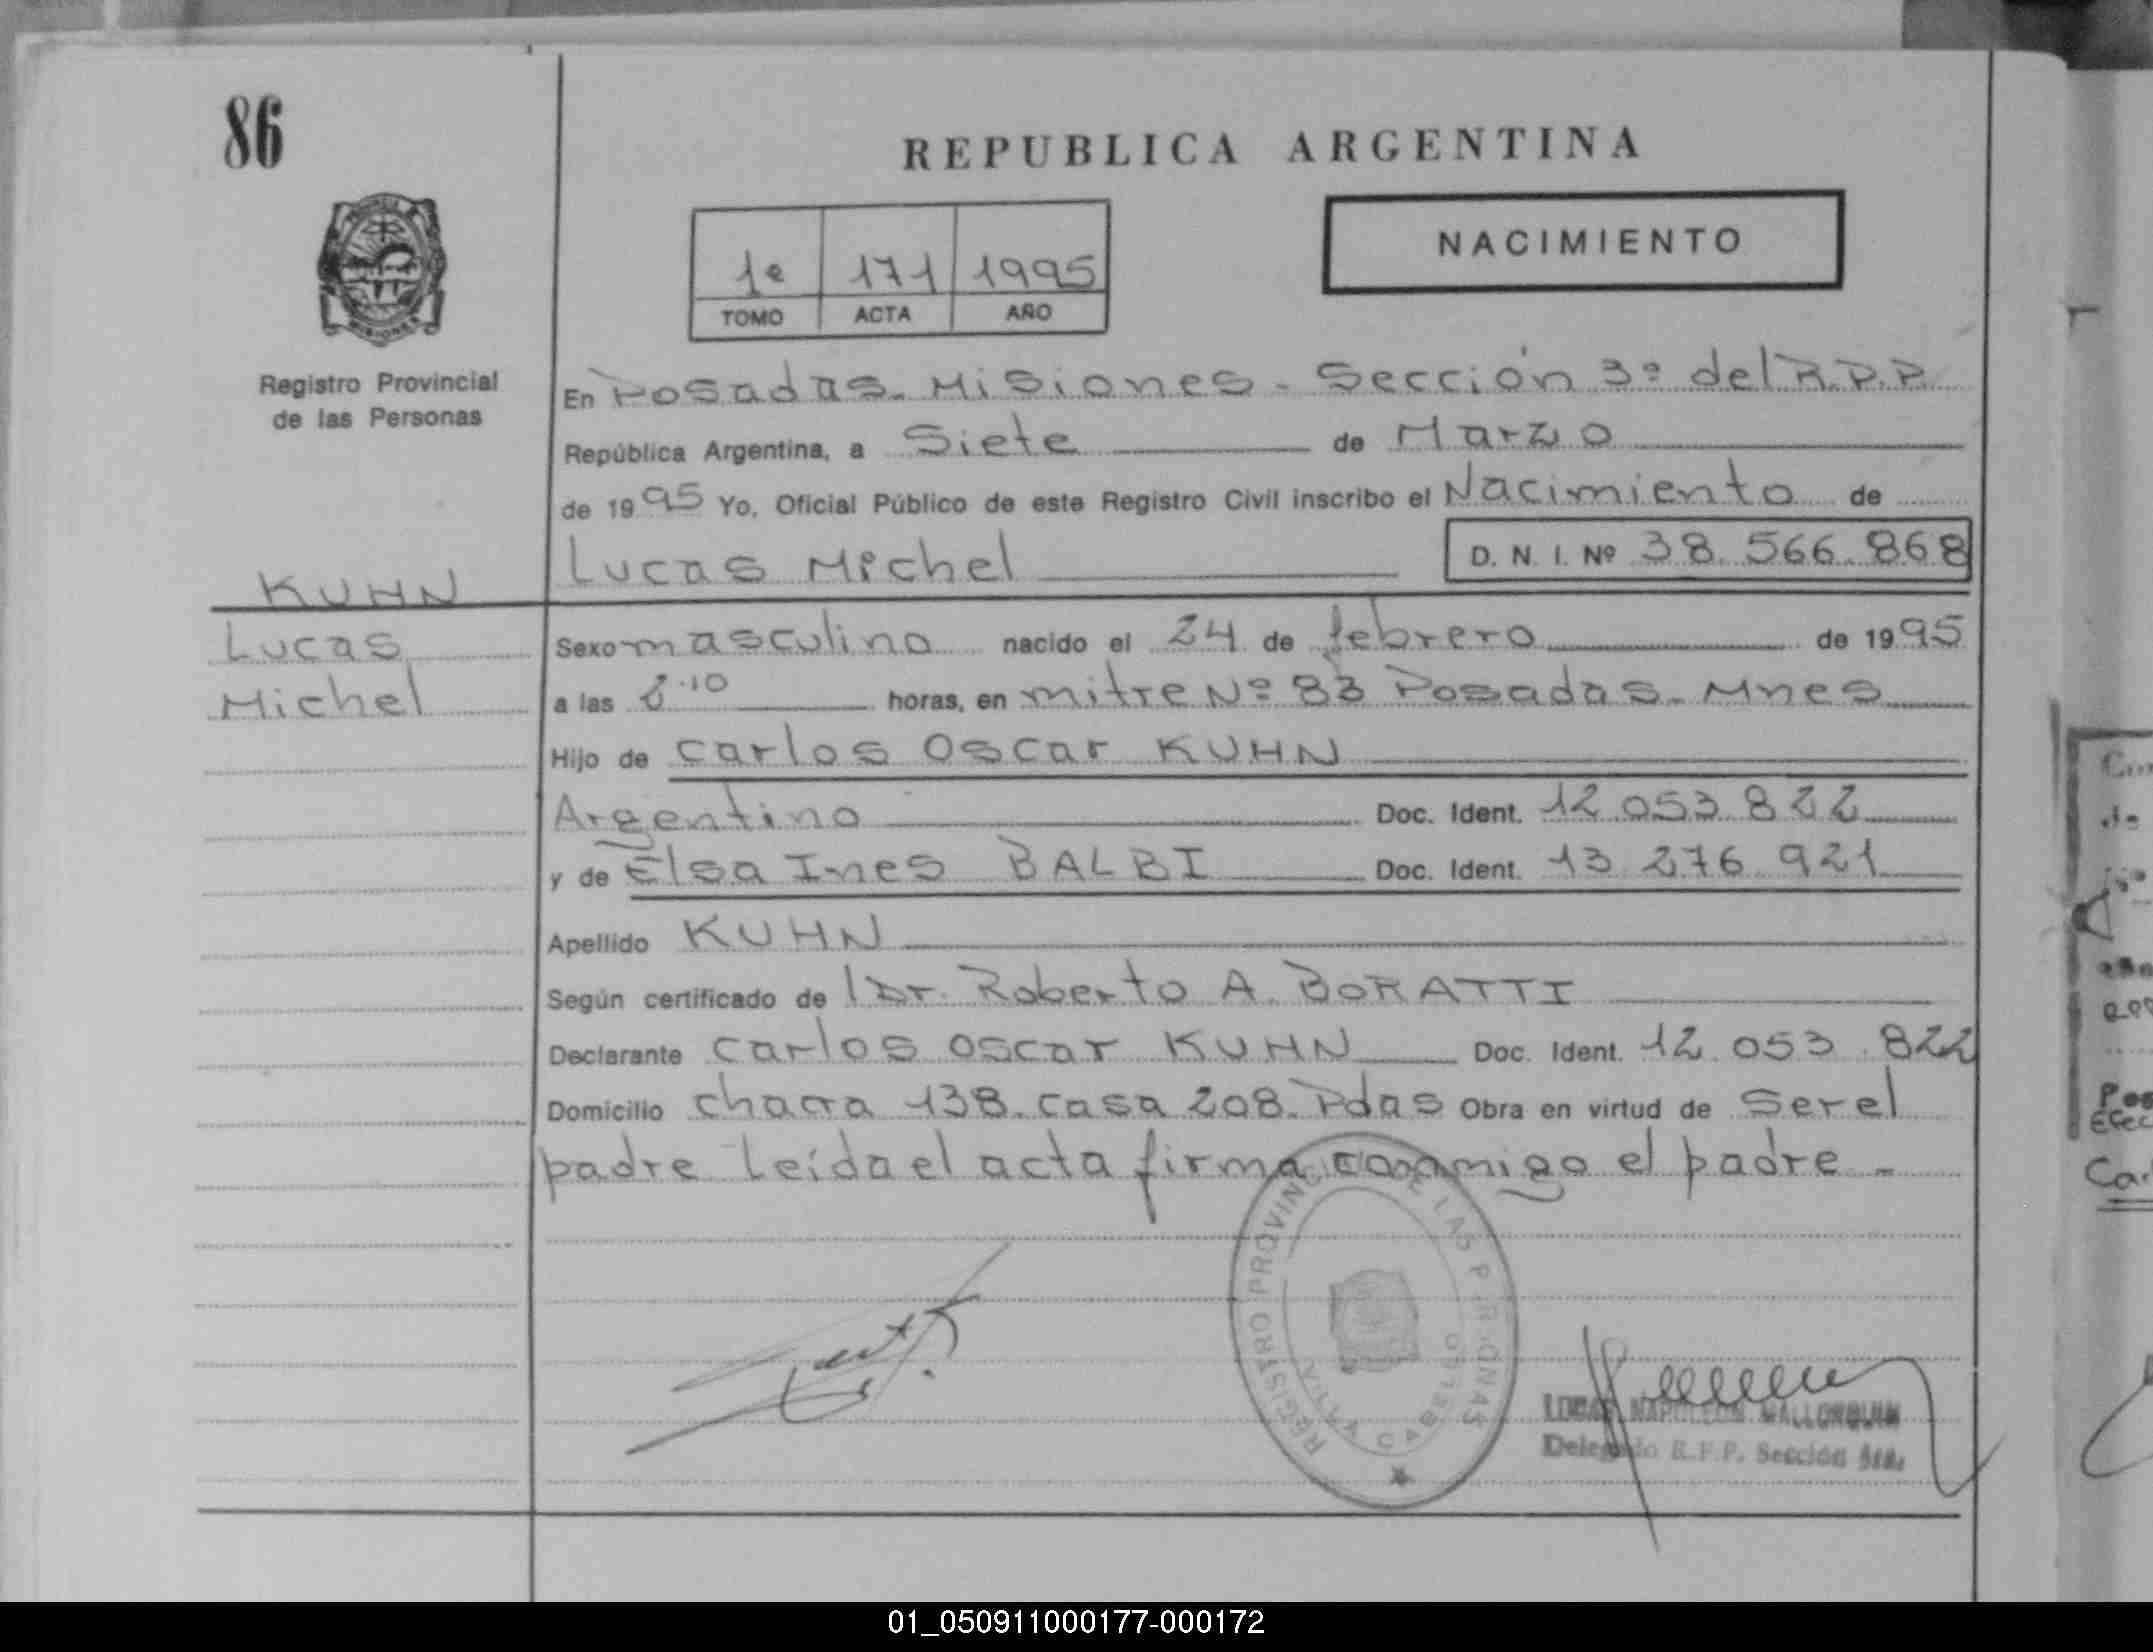 86
REPUBLICA ARGENTINA
1e 171 1995
TOMO ACTA AÑO
NACIMIENTO
MISIONES
Registro Provincial
de las Personas
En Posadas - Misiones - Sección 3º del R.P.P.
República Argentina, a Siete de Marzo
de 1995 Yo, Oficial Público de este Registro Civil inscribo el Nacimiento de
Lucas Michel D. N. I. Nº 38.566.868
KUHN
Lucas
Michel
Sexo masculino nacido el 24 de febrero de 1995
a las 10 horas, en mitre Nº 83 Posadas - Mnes
Hijo de Carlos Oscar KUHN
Argentino Doc. Ident. 12.053.822
y de Elsa Ines BALBI Doc. Ident. 13.276.921
Apellido KUHN
Según certificado de l Dr. Roberto A. BORATTI
Declarante Carlos Oscar KUHN Doc. Ident. 12.053.822
Domicilio chacra 138. casa 208. Pdas Obra en virtud de Ser el
padre Leída el acta firma conmigo el padre -
REGISTRO PROVINC DE LAS PERSONAS
VILLA CABELLO
LUCAS NAPOLEON MALLORQUIN
Delegado R.P.P. Sección 3ra.
01_050911000177-000172